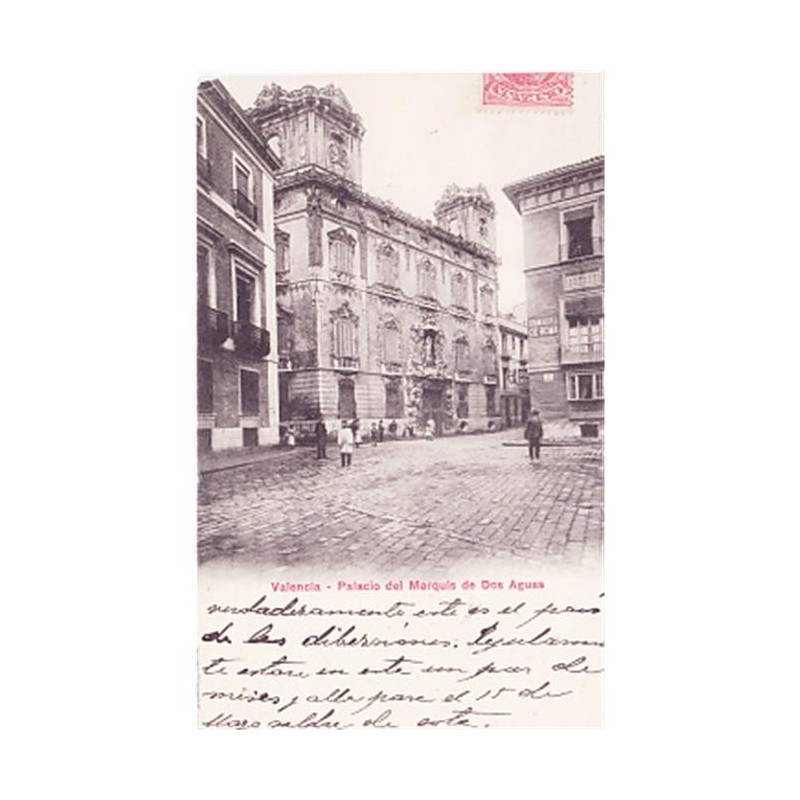 Valencia - Palacio del Marquis de Dos Aguas
verdaderamente este es el pais
de las diberciones.
te estare en este un par de
meses y alla para el 15 de
Marzo saldre de esta.